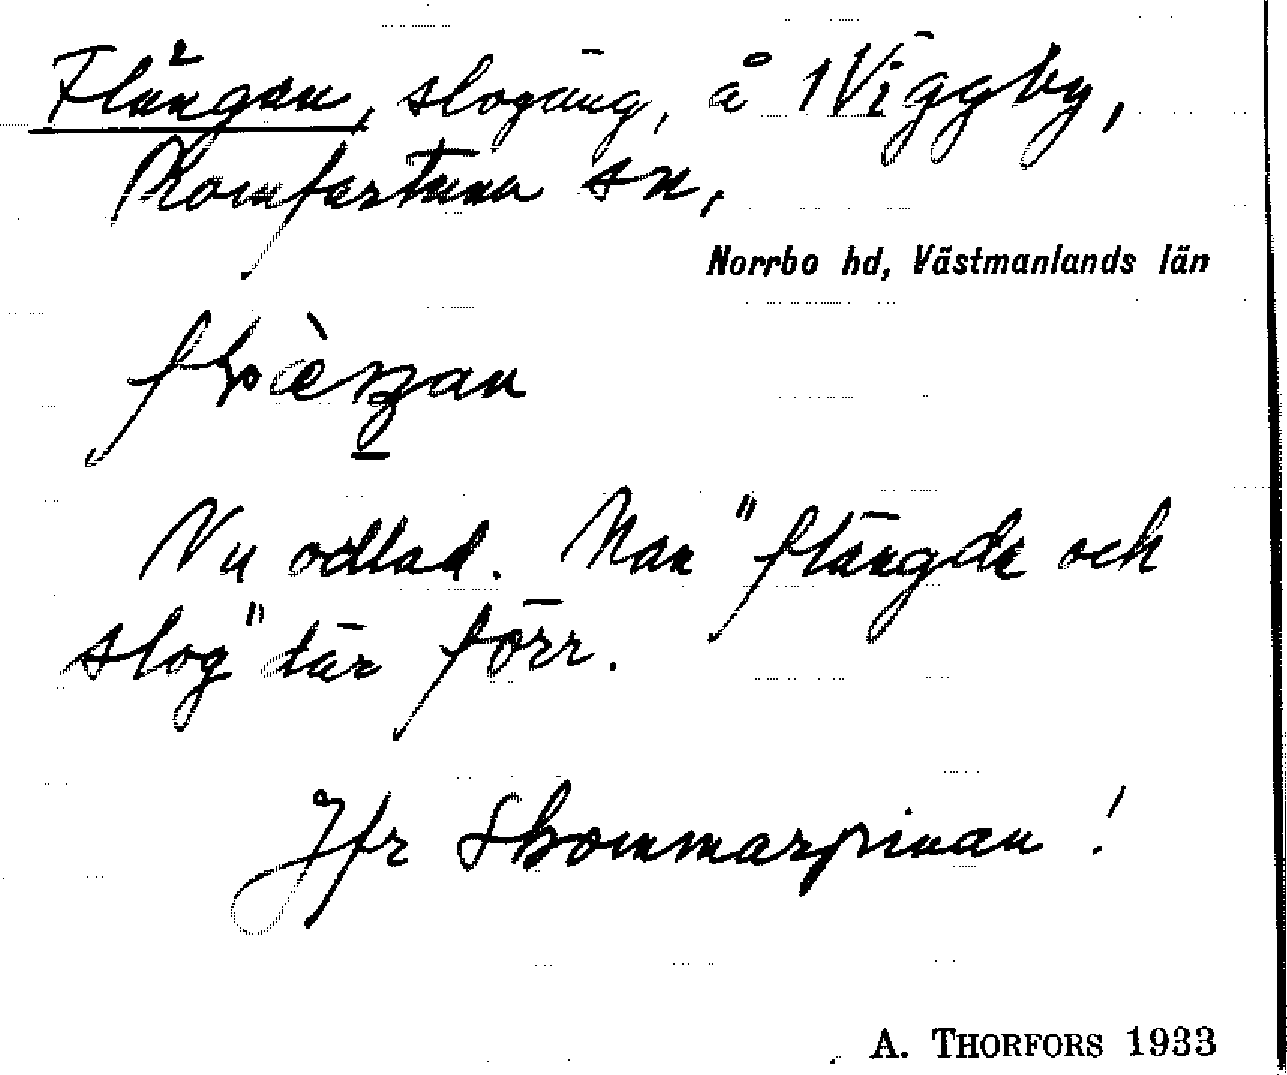 Flängan, slogäng, å Viggby,
Romfartuna sn,
Norrbo hd, Västmanlands län
Nu odlad. Man "flängde och
slog" där förr.
Jfr Skommarpinan!
A. THORFORS 1933